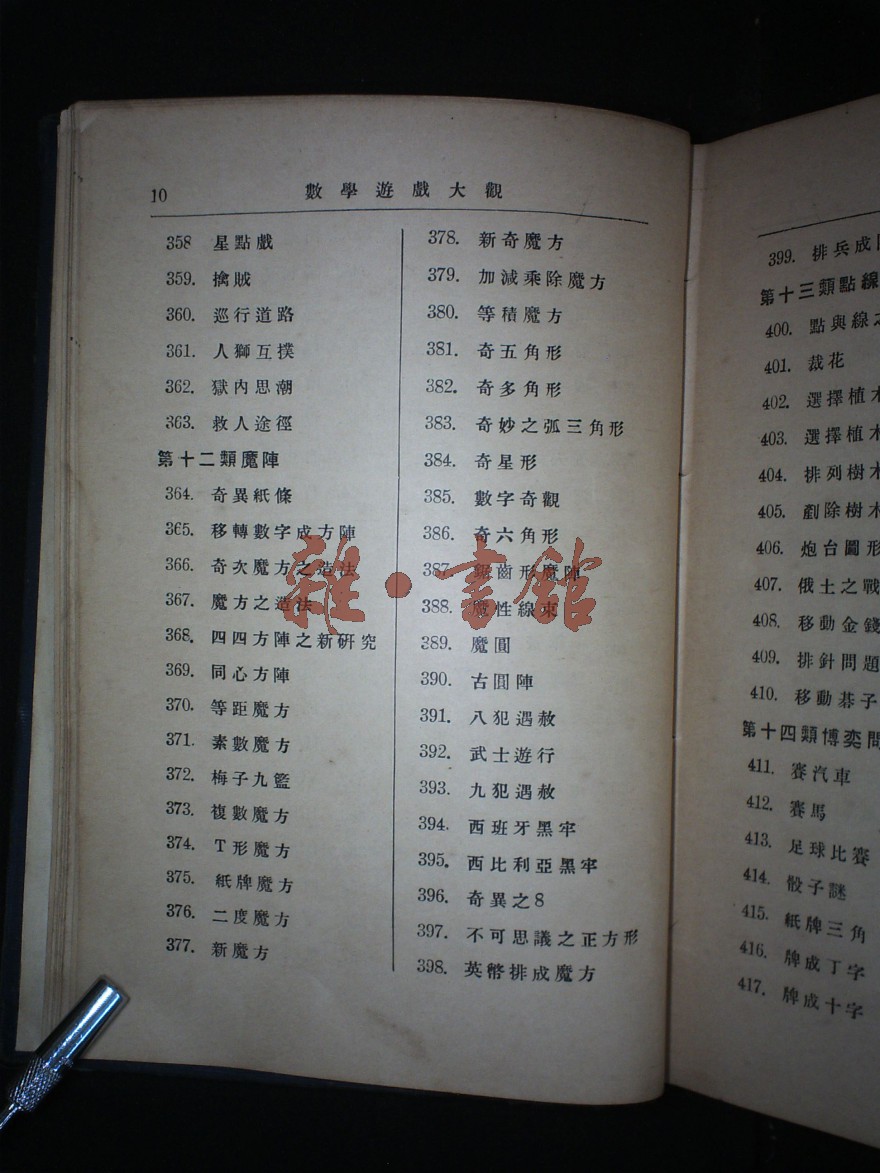 10 數學遊戲大觀
358 星點戲
359. 擒賊
360. 巡行道路
361. 人獅互撲
362. 獄內思潮
363. 救人途徑
第十二類魔陣
364. 奇異紙條
365. 移轉數字成方陣
366. 奇次魔方之造法
367. 魔方之造法
368. 四四方陣之新研究
369. 同心方陣
370. 等距魔方
371. 素數魔方
372. 梅子九籃
373. 複數魔方
374. T形魔方
375. 紙牌魔方
376. 二度魔方
377. 新魔方
378. 新奇魔方
379. 加減乘除魔方
380. 等積魔方
381. 奇五角形
382. 奇多角形
383. 奇妙之弧三角形
384. 奇星形
385. 數字奇觀
386. 奇六角形
387. 鋸齒形魔陣
388. 魔性線束
389. 魔圓
390. 古圓陣
391. 八犯遇赦
392. 武士遊行
393. 九犯遇赦
394. 西班牙黑牢
395. 西比利亞黑牢
396. 奇異之8
397. 不可思議之正方形
398. 英幣排成魔方
雜·書館
399. 排兵成
第十三類點線
400. 點與線之
401. 裁花
402. 選擇植木
403. 選擇植木
404. 排列樹木
405. 剷除樹木
406. 炮台圖形
407. 俄土之戰
408. 移動金錢
409. 排針問題
410. 移動棊子
第十四類博奕問
411. 賽汽車
412. 賽馬
413. 足球比賽
414. 骰子謎
415. 紙牌三角
416. 牌成丁字
417. 牌成十字